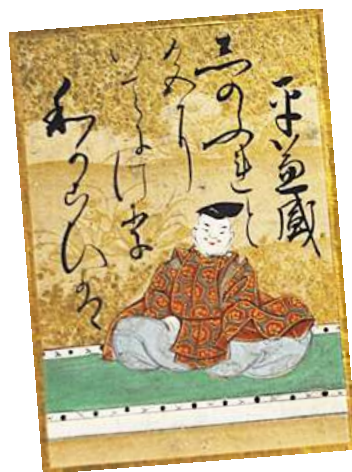 平兼盛
しのふれと
色に
いてにけり
和かこひは